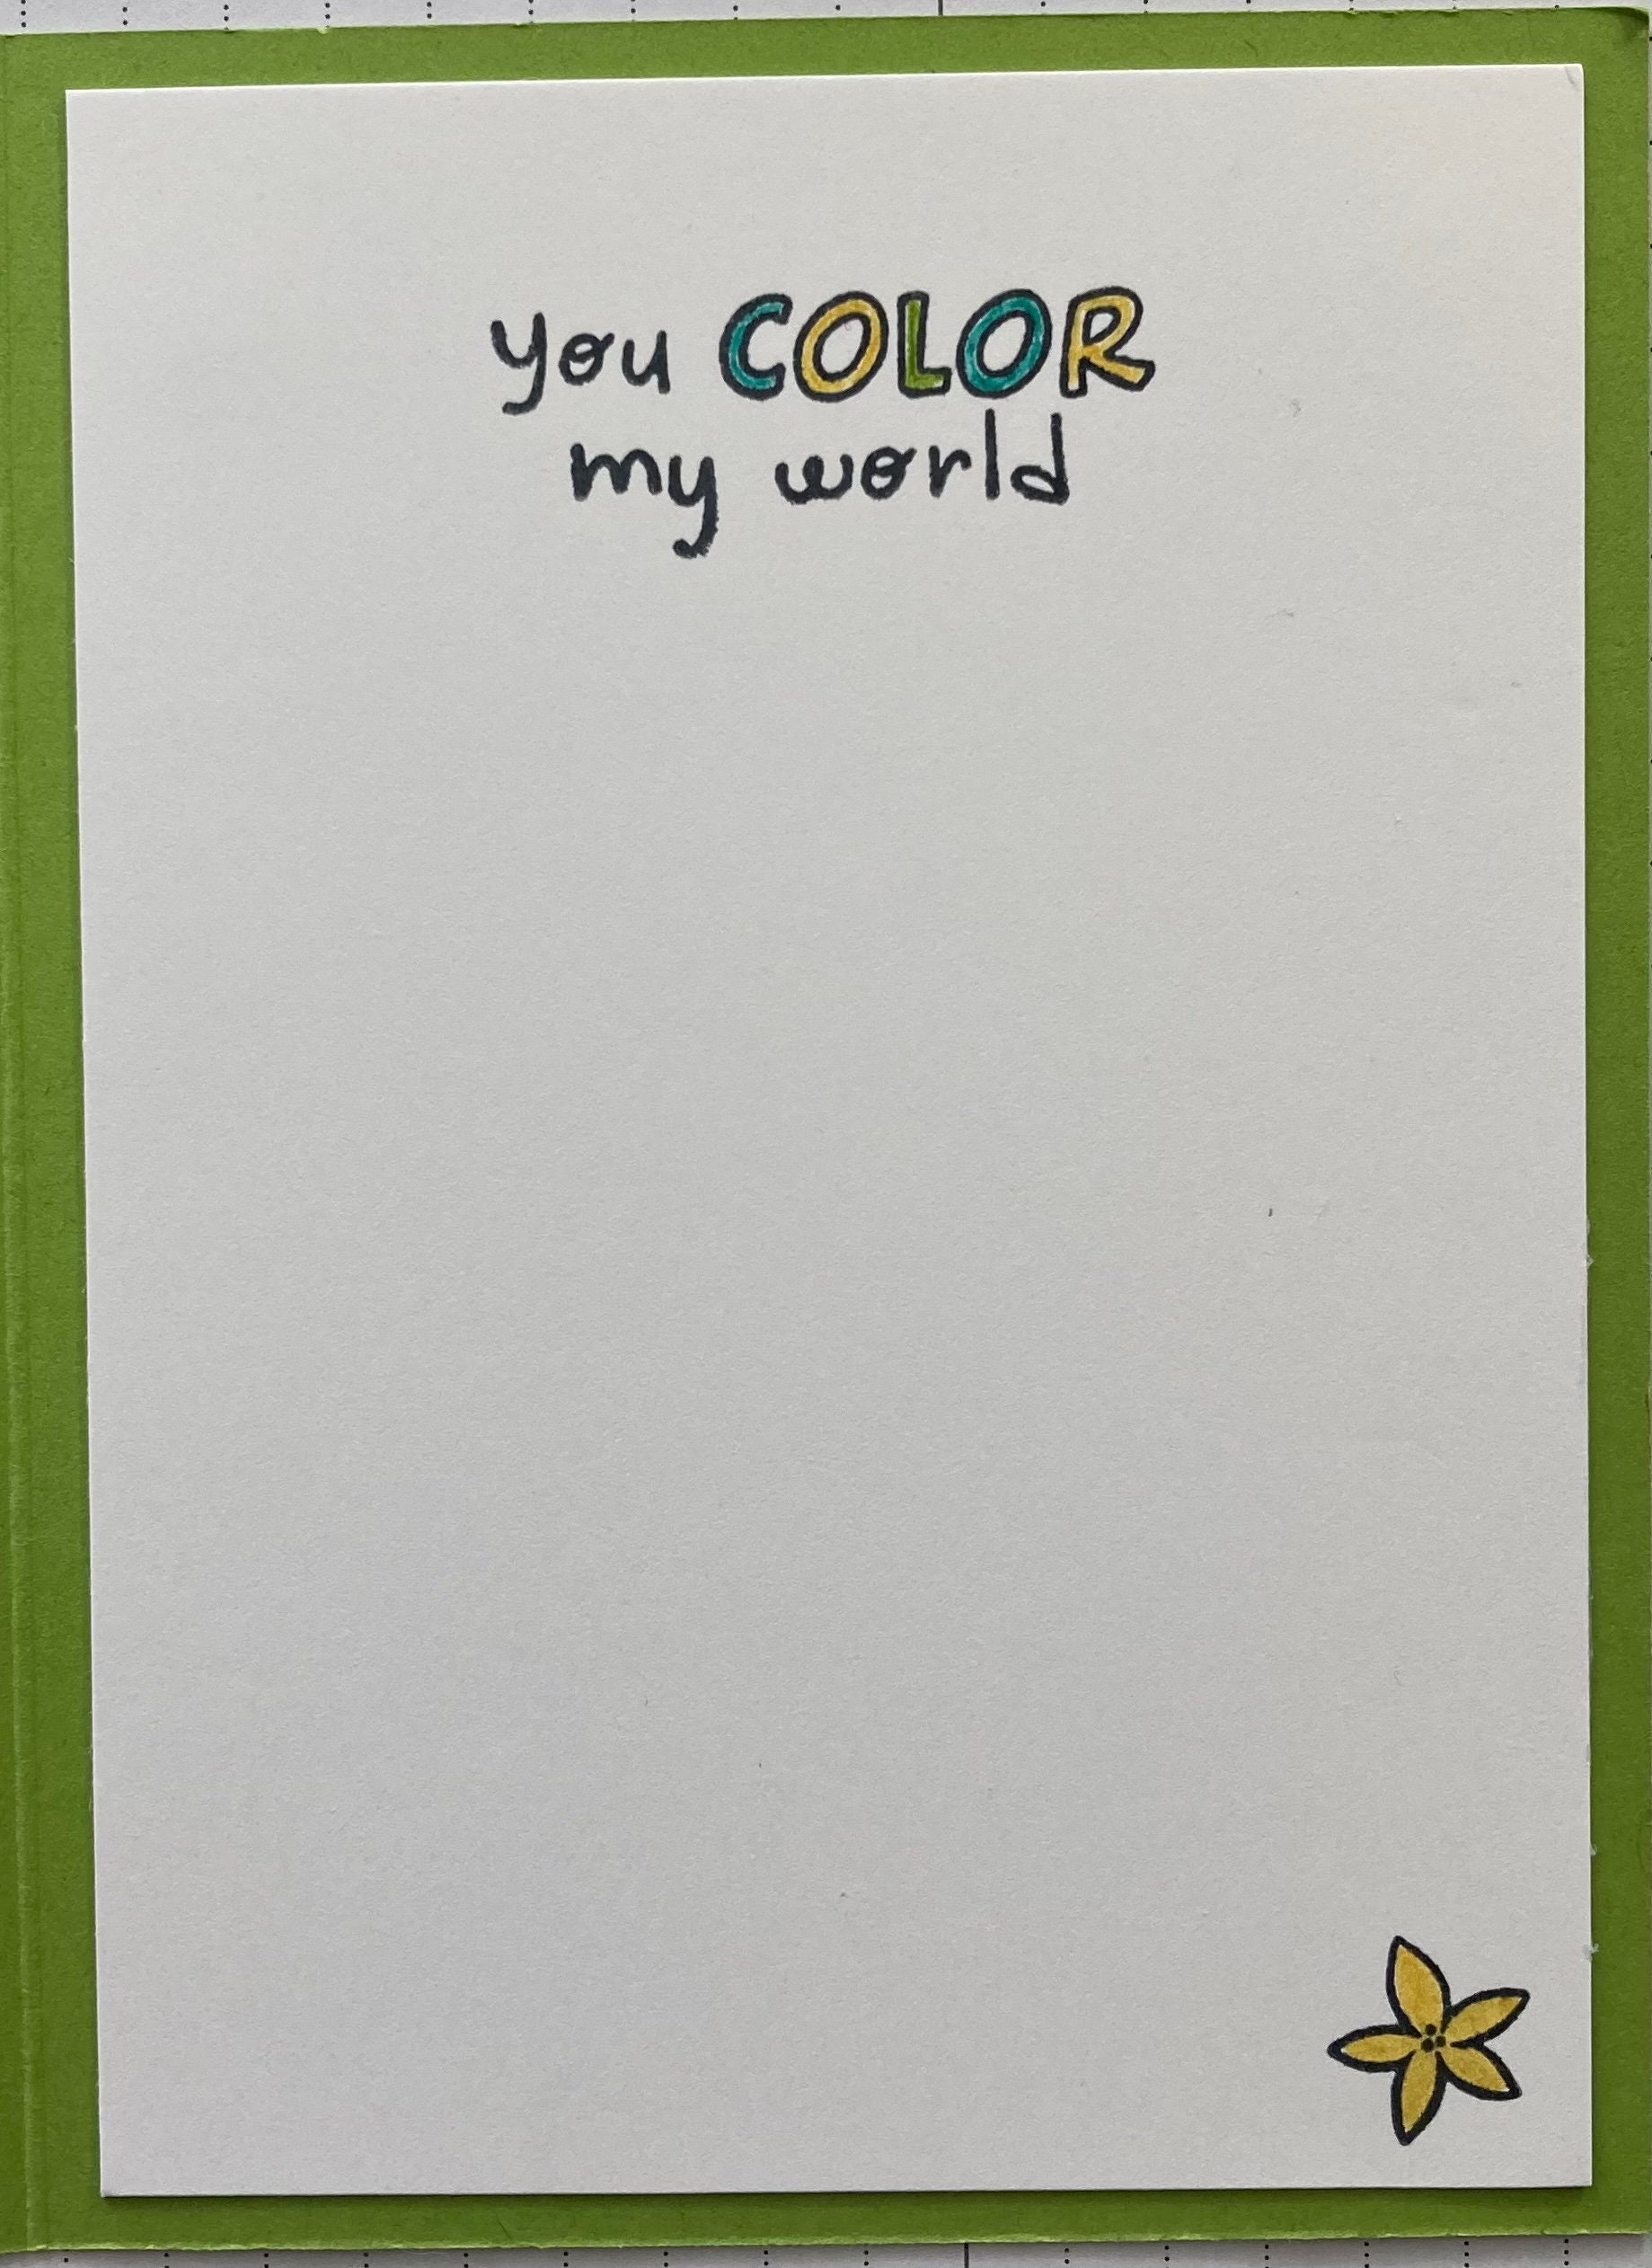 you COLOR
my world